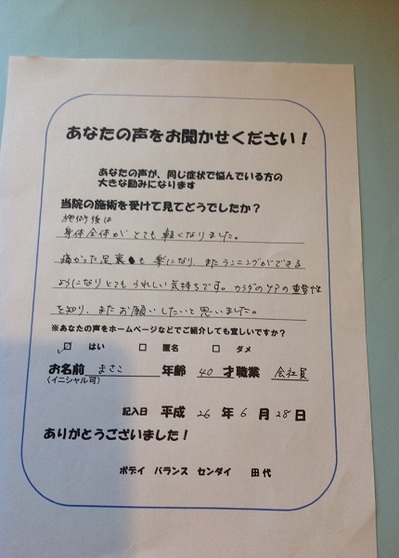 あなたの声をお聞かせください！
あなたの声が、同じ症状で悩んでいる方の
大きな励みになります
当院の施術を受けて見てどうでしたか？
施術後は
身体全体がとても軽くなりました。
痛かった足裏も楽になり、またランニングができる
ようになりとてもうれしい気持ちです。カラダのケアの重要性
を知り、またお願いしたいと思いました。
※あなたの声をホームページなどでご紹介しても宜しいですか？
☑ はい □ 匿名 □ ダメ
お名前 まさこ 年齢 40 才職業 会社員
(イニシャル可)
記入日 平成 26 年 6 月 28 日
ありがとうございました！
ボディ バランス センダイ 田代